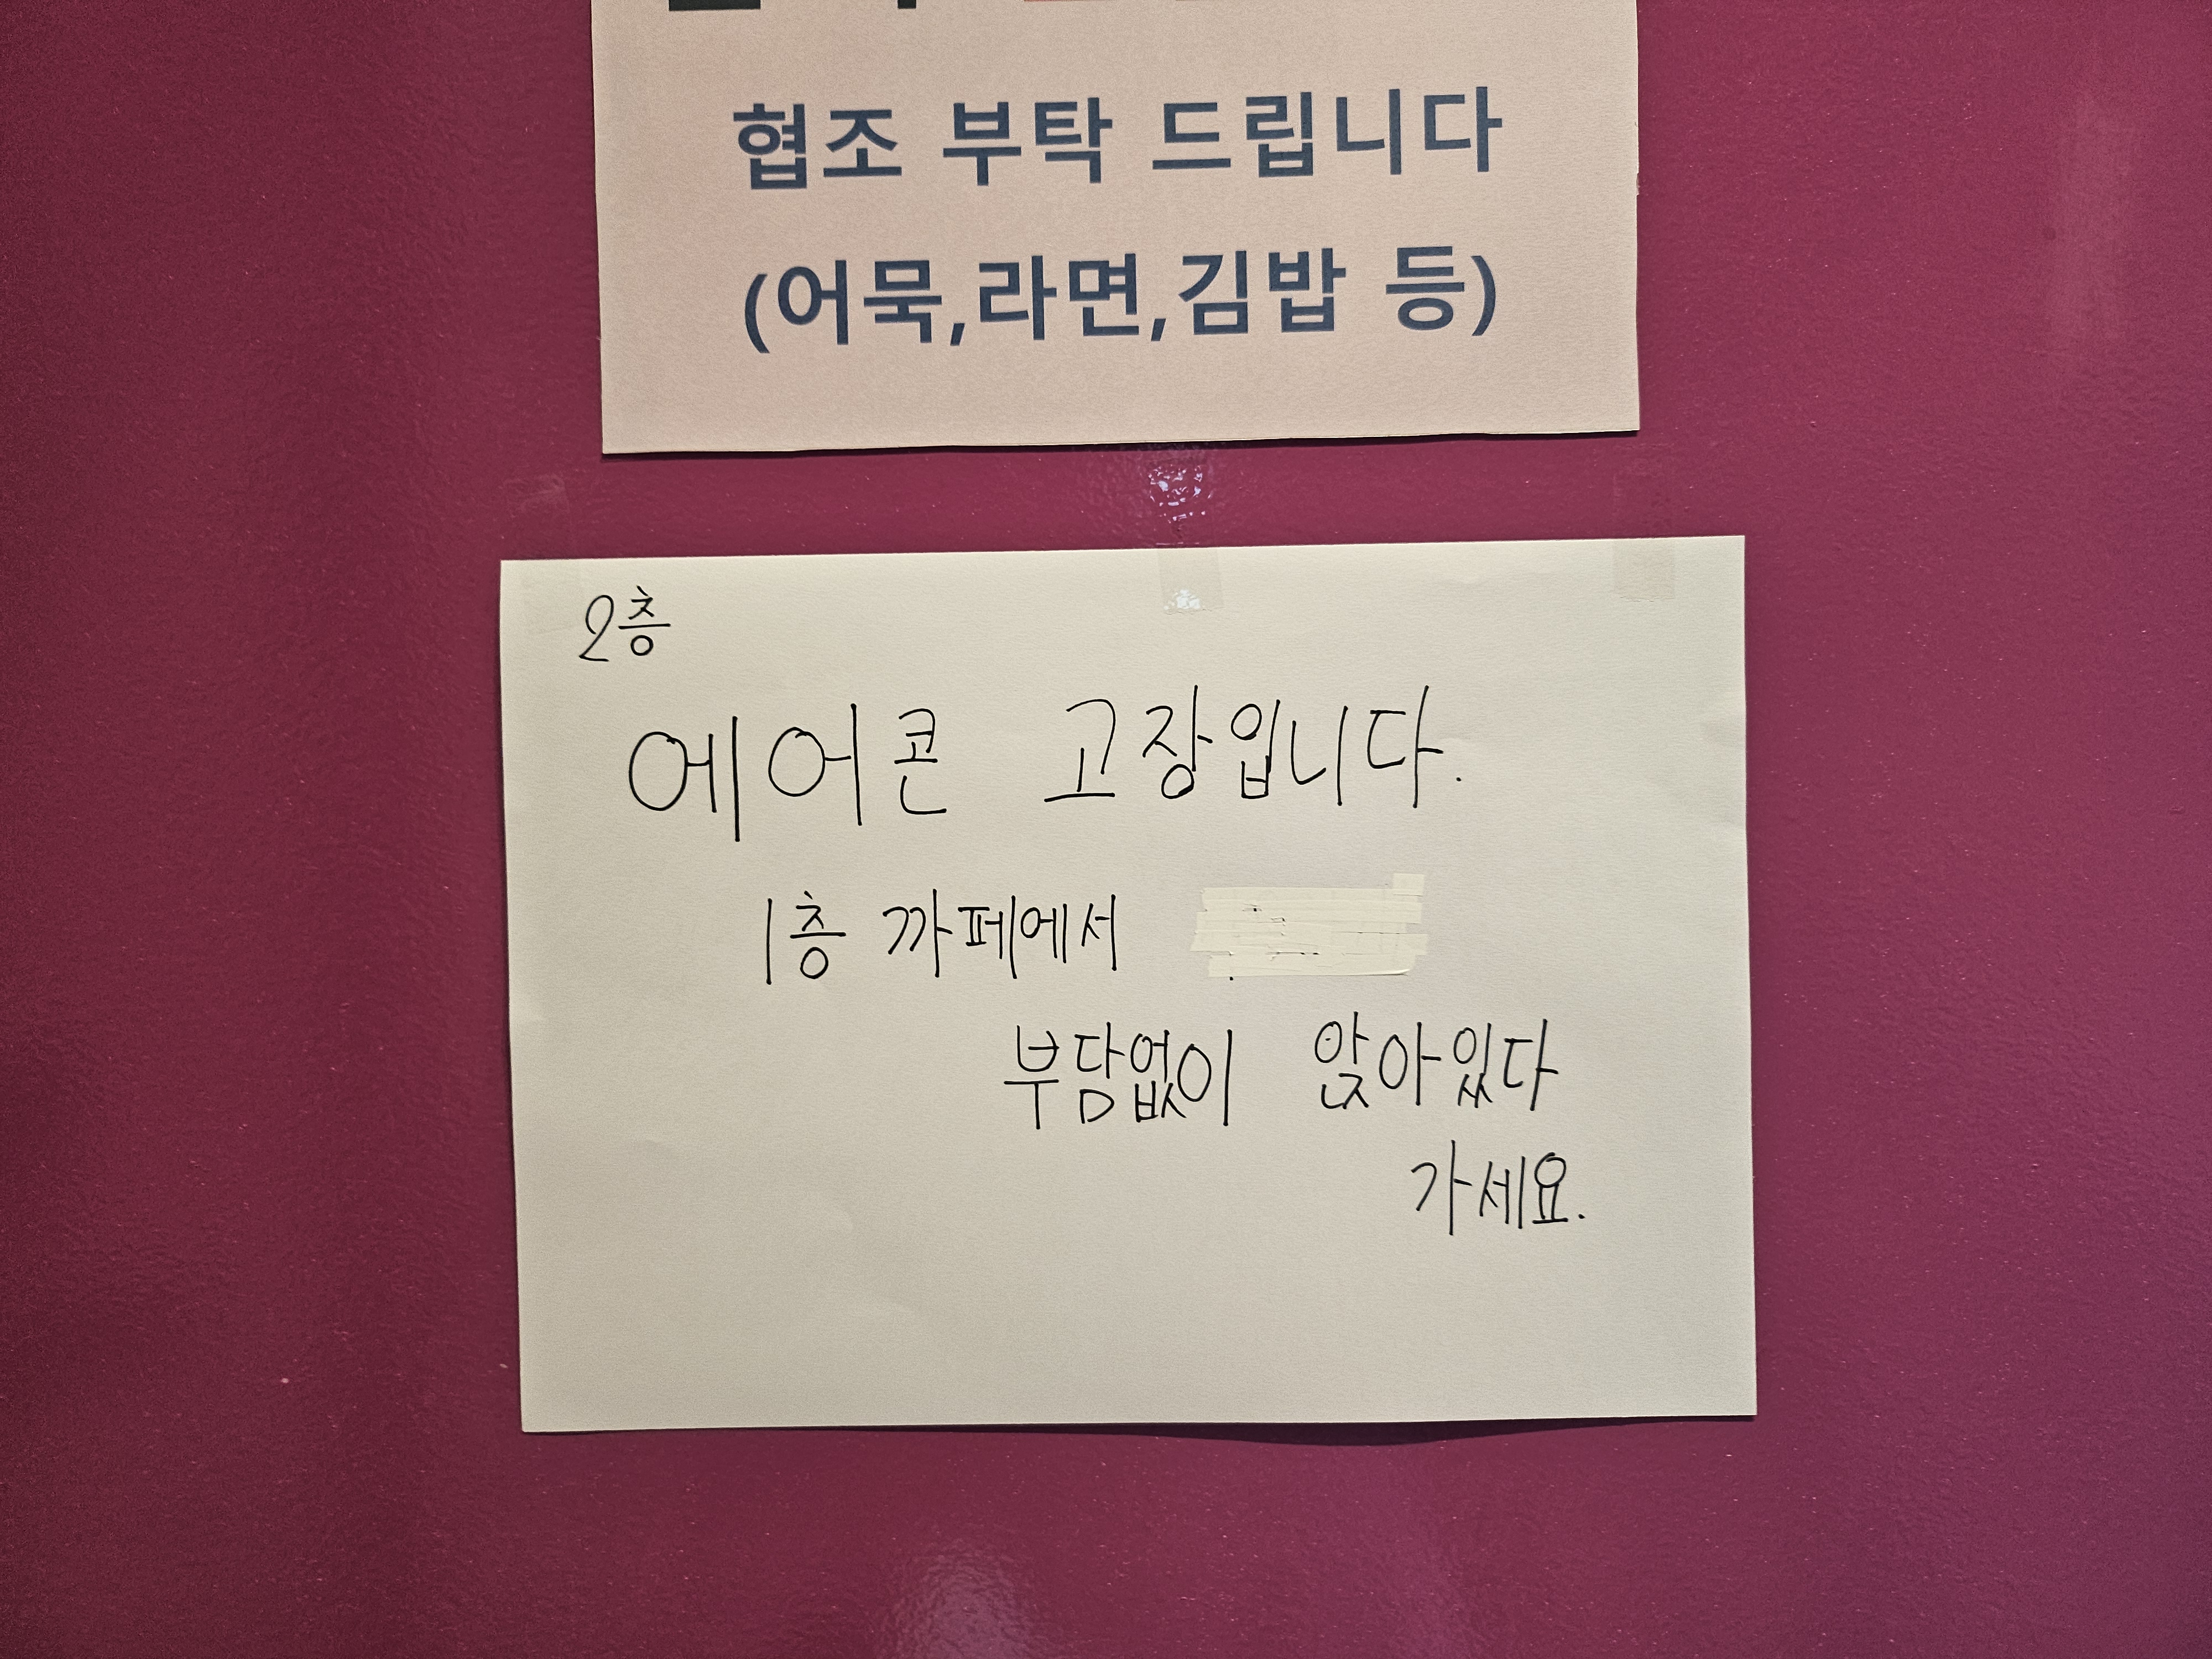 협조 부탁 드립니다
(어묵,라면,김밥 등)
2층
에어콘 고장입니다.
1층 까페에서
부담없이 앉아있다
가세요.